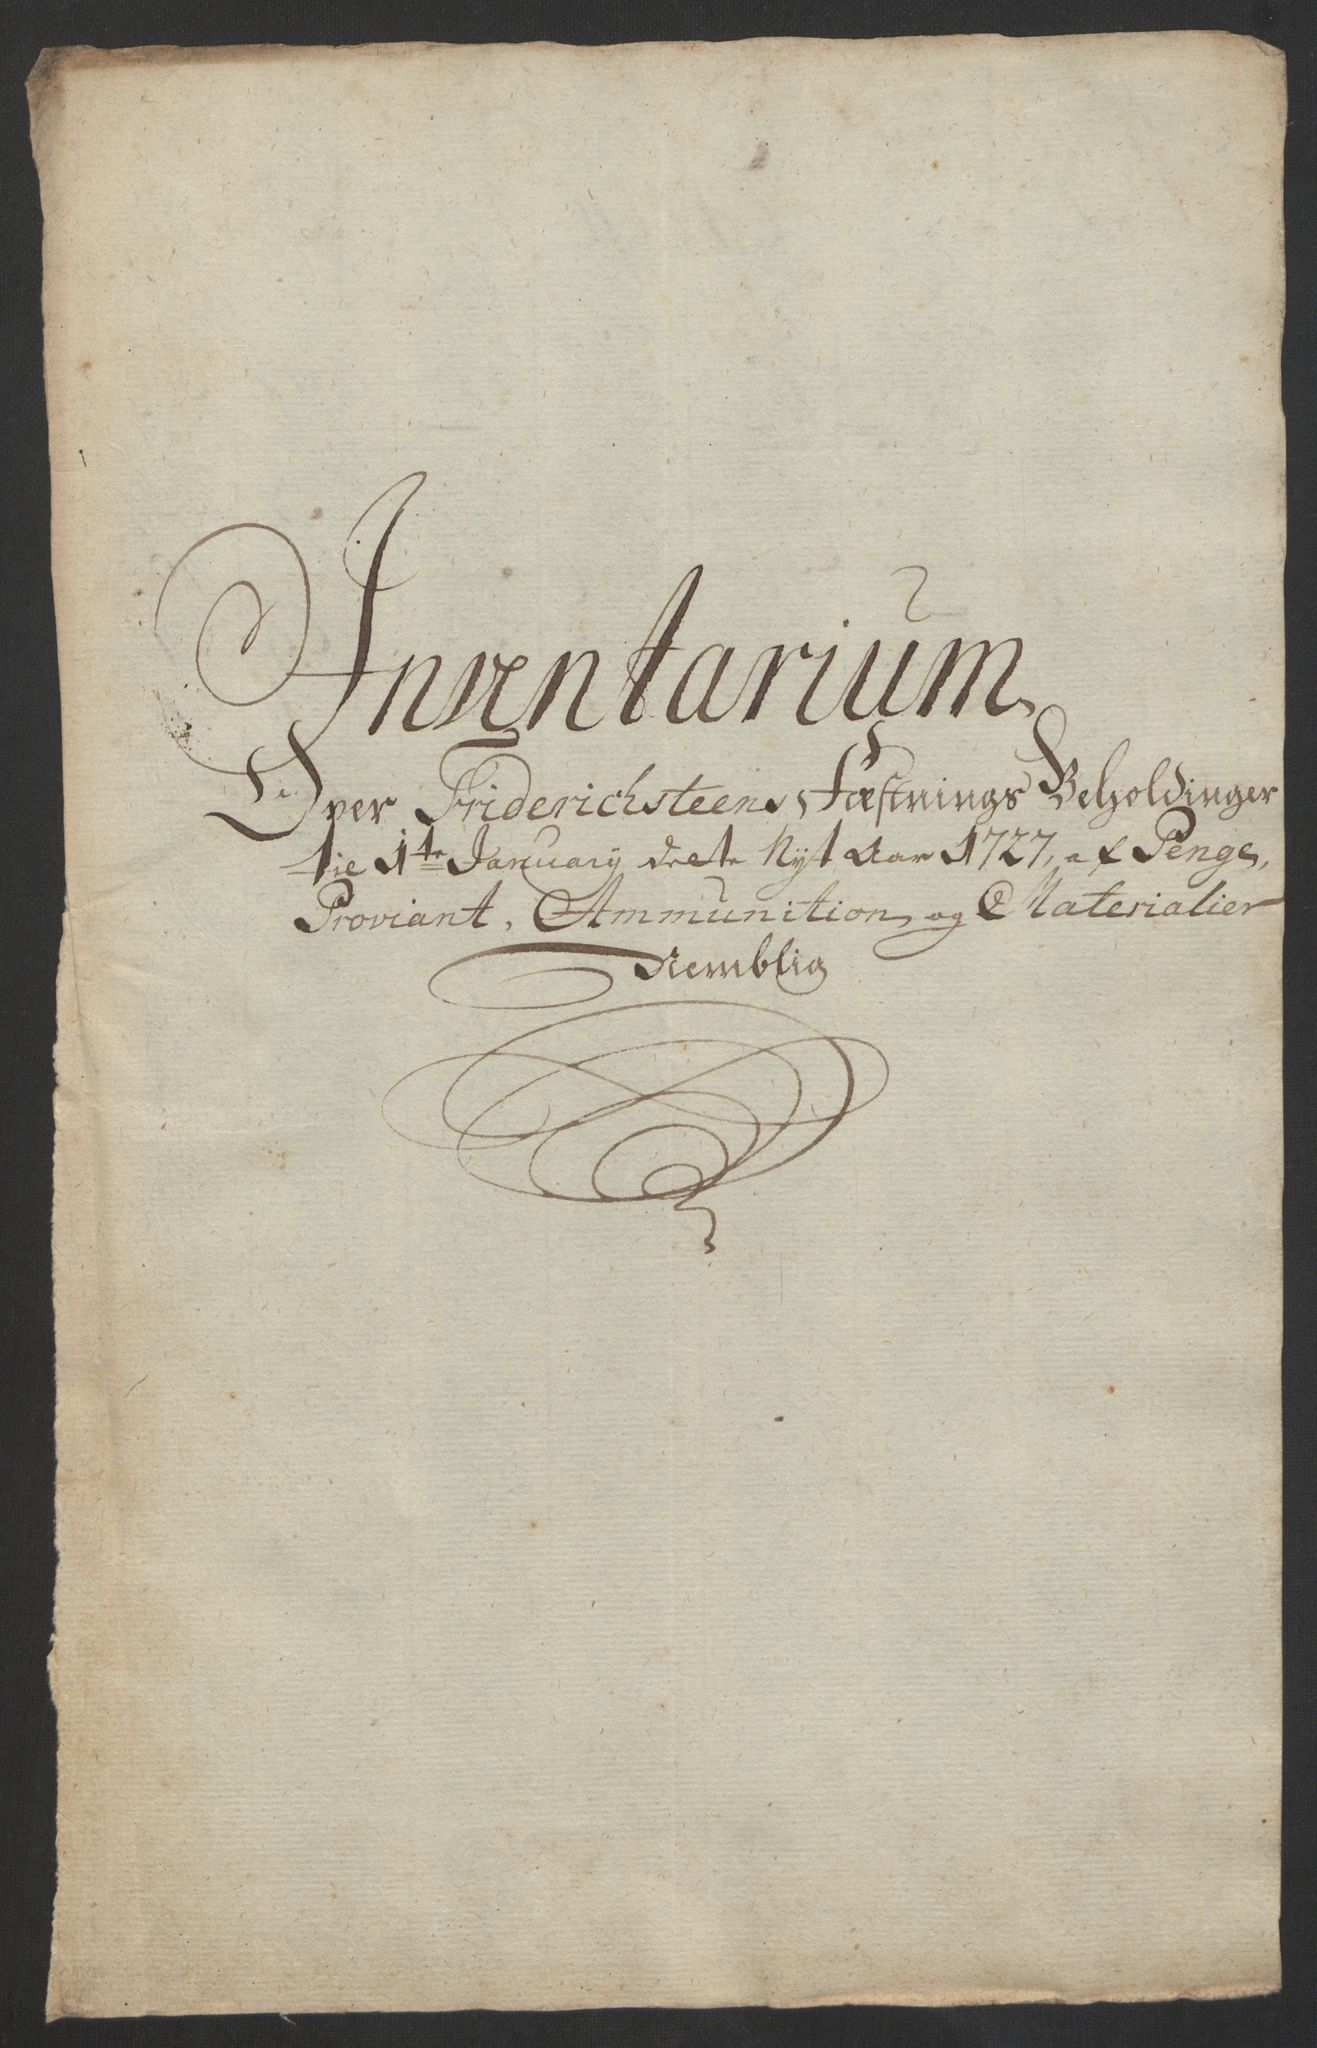 Inventarium
Over Friderichsteens Fæstnings Beholdinger
til 1te January dette Nyt Aar 1727, af Penge,
Proviant, Ammunition, og Materialier
Nemblig